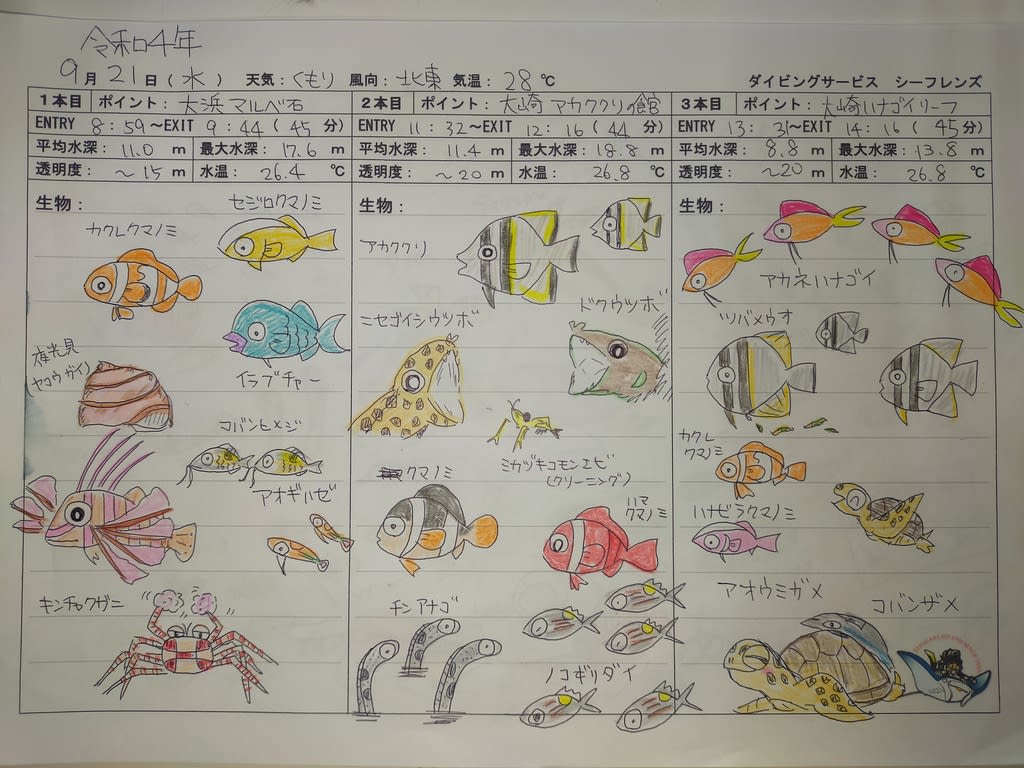 令和4年
9月21日(水) 天気:くもり 風向:北東 気温:28℃ ダイビングサービス シーフレンズ
1本目 ポイント:大浜マルベ石
ENTRY 8:59~EXIT 9:44(45分)
平均水深:11.0m 最大水深:17.6m
透明度:~15m 水温:26.4℃
生物:
セジロクマノミ
カクレクマノミ
夜光貝
(ヤコウガイ)
イラブチャー
コバンヒメジ
アオギハゼ
キンチャクガニ
2本目 ポイント:大崎アカククリの館
ENTRY 11:32~EXIT 12:16(44分)
平均水深:11.4m 最大水深:18.8m
透明度:~20m 水温:26.8℃
生物:
アカククリ
ニセゴイシウツボ
ドクウツボ
ミカヅキコモンエビ
(クリーニング)
クマノミ
ハマ
クマノミ
チンアナゴ
ノコギリダイ
3本目 ポイント:大崎ハナゴイリーフ
ENTRY 13:31~EXIT 14:16(45分)
平均水深:8.8m 最大水深:13.8m
透明度:~20m 水温:26.8℃
生物:
アカネハナゴイ
ツバメウオ
カクレ
クマノミ
ハナビラクマノミ
アオウミガメ
コバンザメ